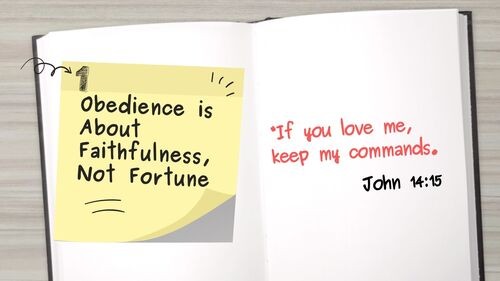 1
Obedience is
About
Faithfulness,
Not Fortune
"If you love me,
keep my commands.
John 14:15